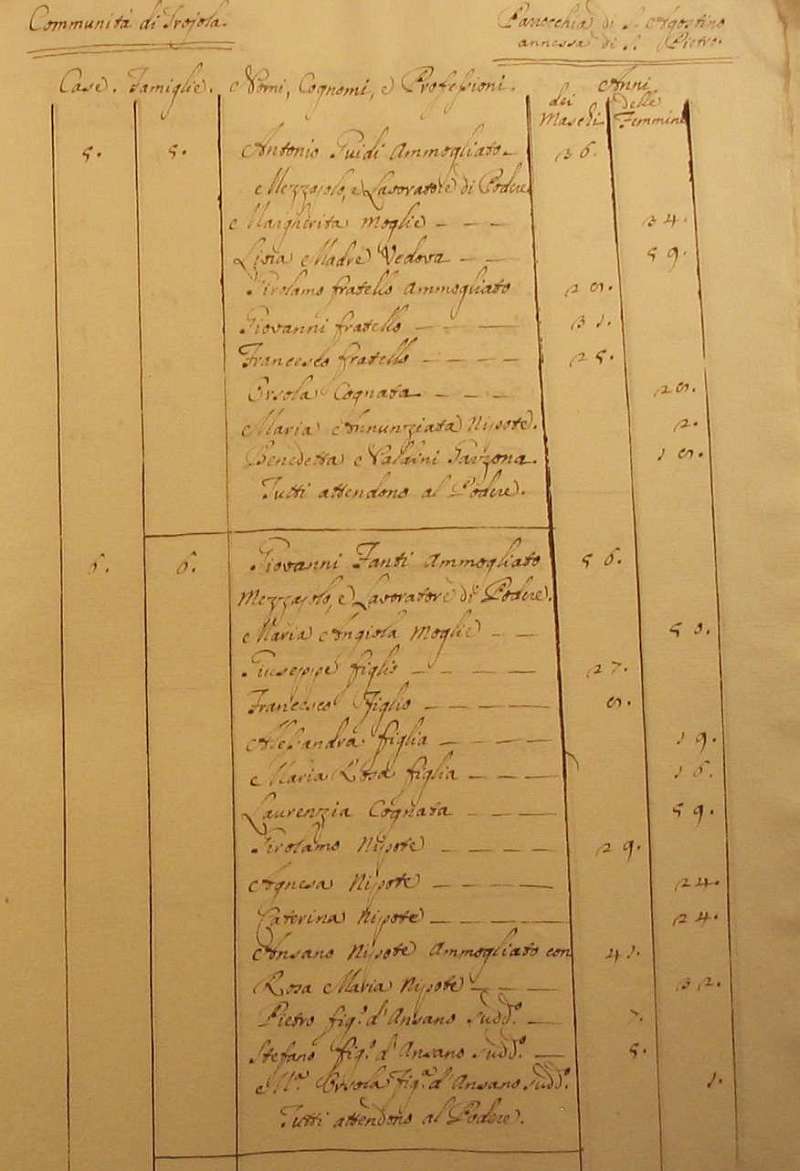 Communità di Frosola.
Parocchia di S. Agostino
annessa di S. Pietro.
Case. Famiglie. Nomi, Cognomi, e Professioni. Anni
dei Maschi. delle Femmine
5. 5. Antonio Guidi Ammogliato 36.
Mezzajolo, e Lavoratore di Podere
Margherita Moglie 34.
Lisia Madre Vedova 59.
Girolamo fratello Ammogliato
Giovanni fratello 31.
Francesco fratello 25.
Orsola Cognata
Maria Annunziata Nipote. 2.
Benedetta Garzona.
Tutti attendono al Podere.
6. 6. Giovanni Fanti Ammogliato 56.
Mezzajolo, e Lavoratore di Podere.
Maria Angiola Moglie
Giuseppe figlio 27.
Francesco Figlio
Alessandra figlia 19.
Maria Rosa figlia 16.
Laurenzia Cognata 59.
Girolamo Nipote 29.
Agnesa Nipote 24.
Caterina Nipote 24.
Ansano Nipote Ammogliato con 41.
Rosa Maria Nipote 32.
Pietro fig.º d'Ansano sudd.º 7.
Stefano fig.º d'Ansano sudd.º 5.
M.ª Orsola Fig.ª d'Ansano sudd.º 1.
Tutti attendono al Podere.